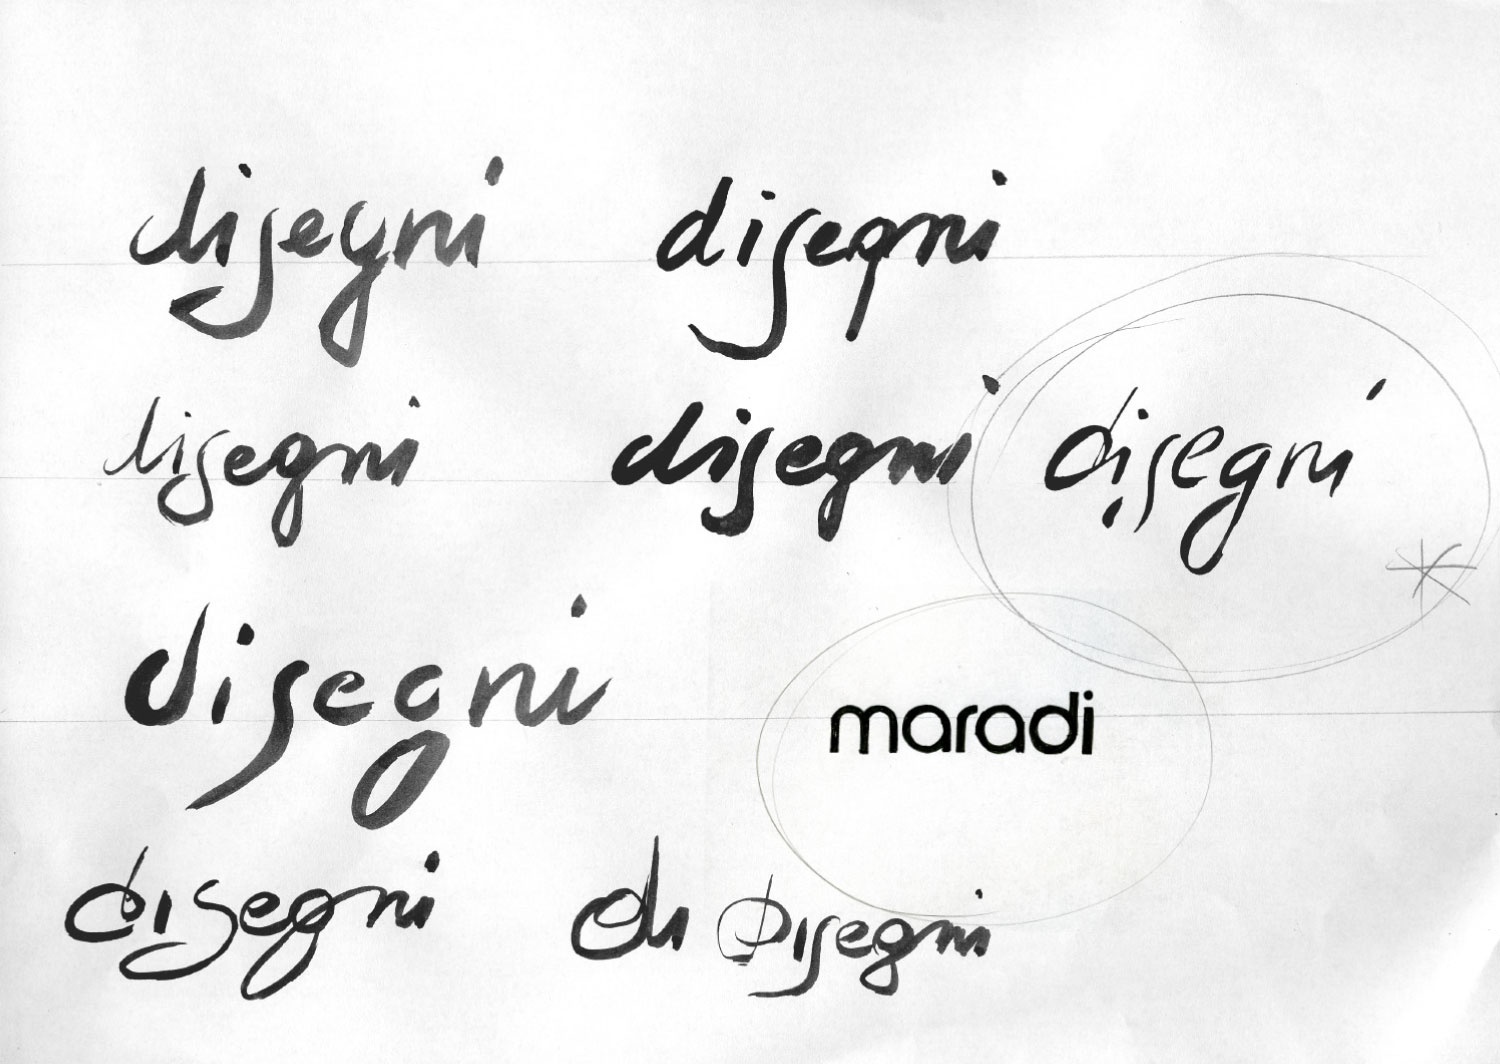 disegni disegni
disegni disegni disegni
disegni
maradi
disegni di disegni